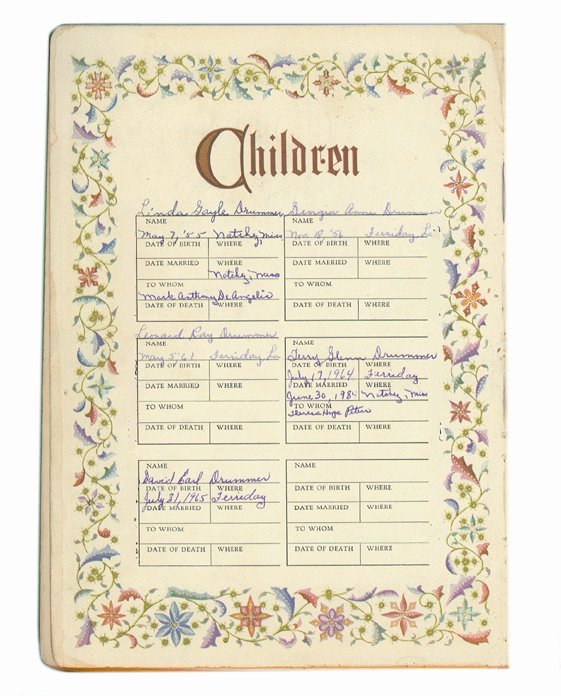 Children
Linda Gayle Drummer
NAME
May 7, '55 Natchez, Miss
DATE OF BIRTH WHERE
DATE MARRIED WHERE
Natchez, Miss
TO WHOM
Mark Anthony DeAngelis
DATE OF DEATH WHERE
Georgia Anne Drummer
NAME
Nov. 18, '56 Ferriday La
DATE OF BIRTH WHERE
DATE MARRIED WHERE
TO WHOM
DATE OF DEATH WHERE
Leonard Ray Drummer
NAME
May 5, '61 Ferriday La
DATE OF BIRTH WHERE
DATE MARRIED WHERE
TO WHOM
DATE OF DEATH WHERE
NAME
Terry Glenn Drummer
DATE OF BIRTH WHERE
July 17, 1964 Ferriday
DATE MARRIED WHERE
June 30, 1984 Natchez, Miss
TO WHOM
Theresa Hope Peters
DATE OF DEATH WHERE
NAME
David Earl Drummer
DATE OF BIRTH WHERE
July 31, 1965 Ferriday
DATE MARRIED WHERE
TO WHOM
DATE OF DEATH WHERE
NAME
DATE OF BIRTH WHERE
DATE MARRIED WHERE
TO WHOM
DATE OF DEATH WHERE